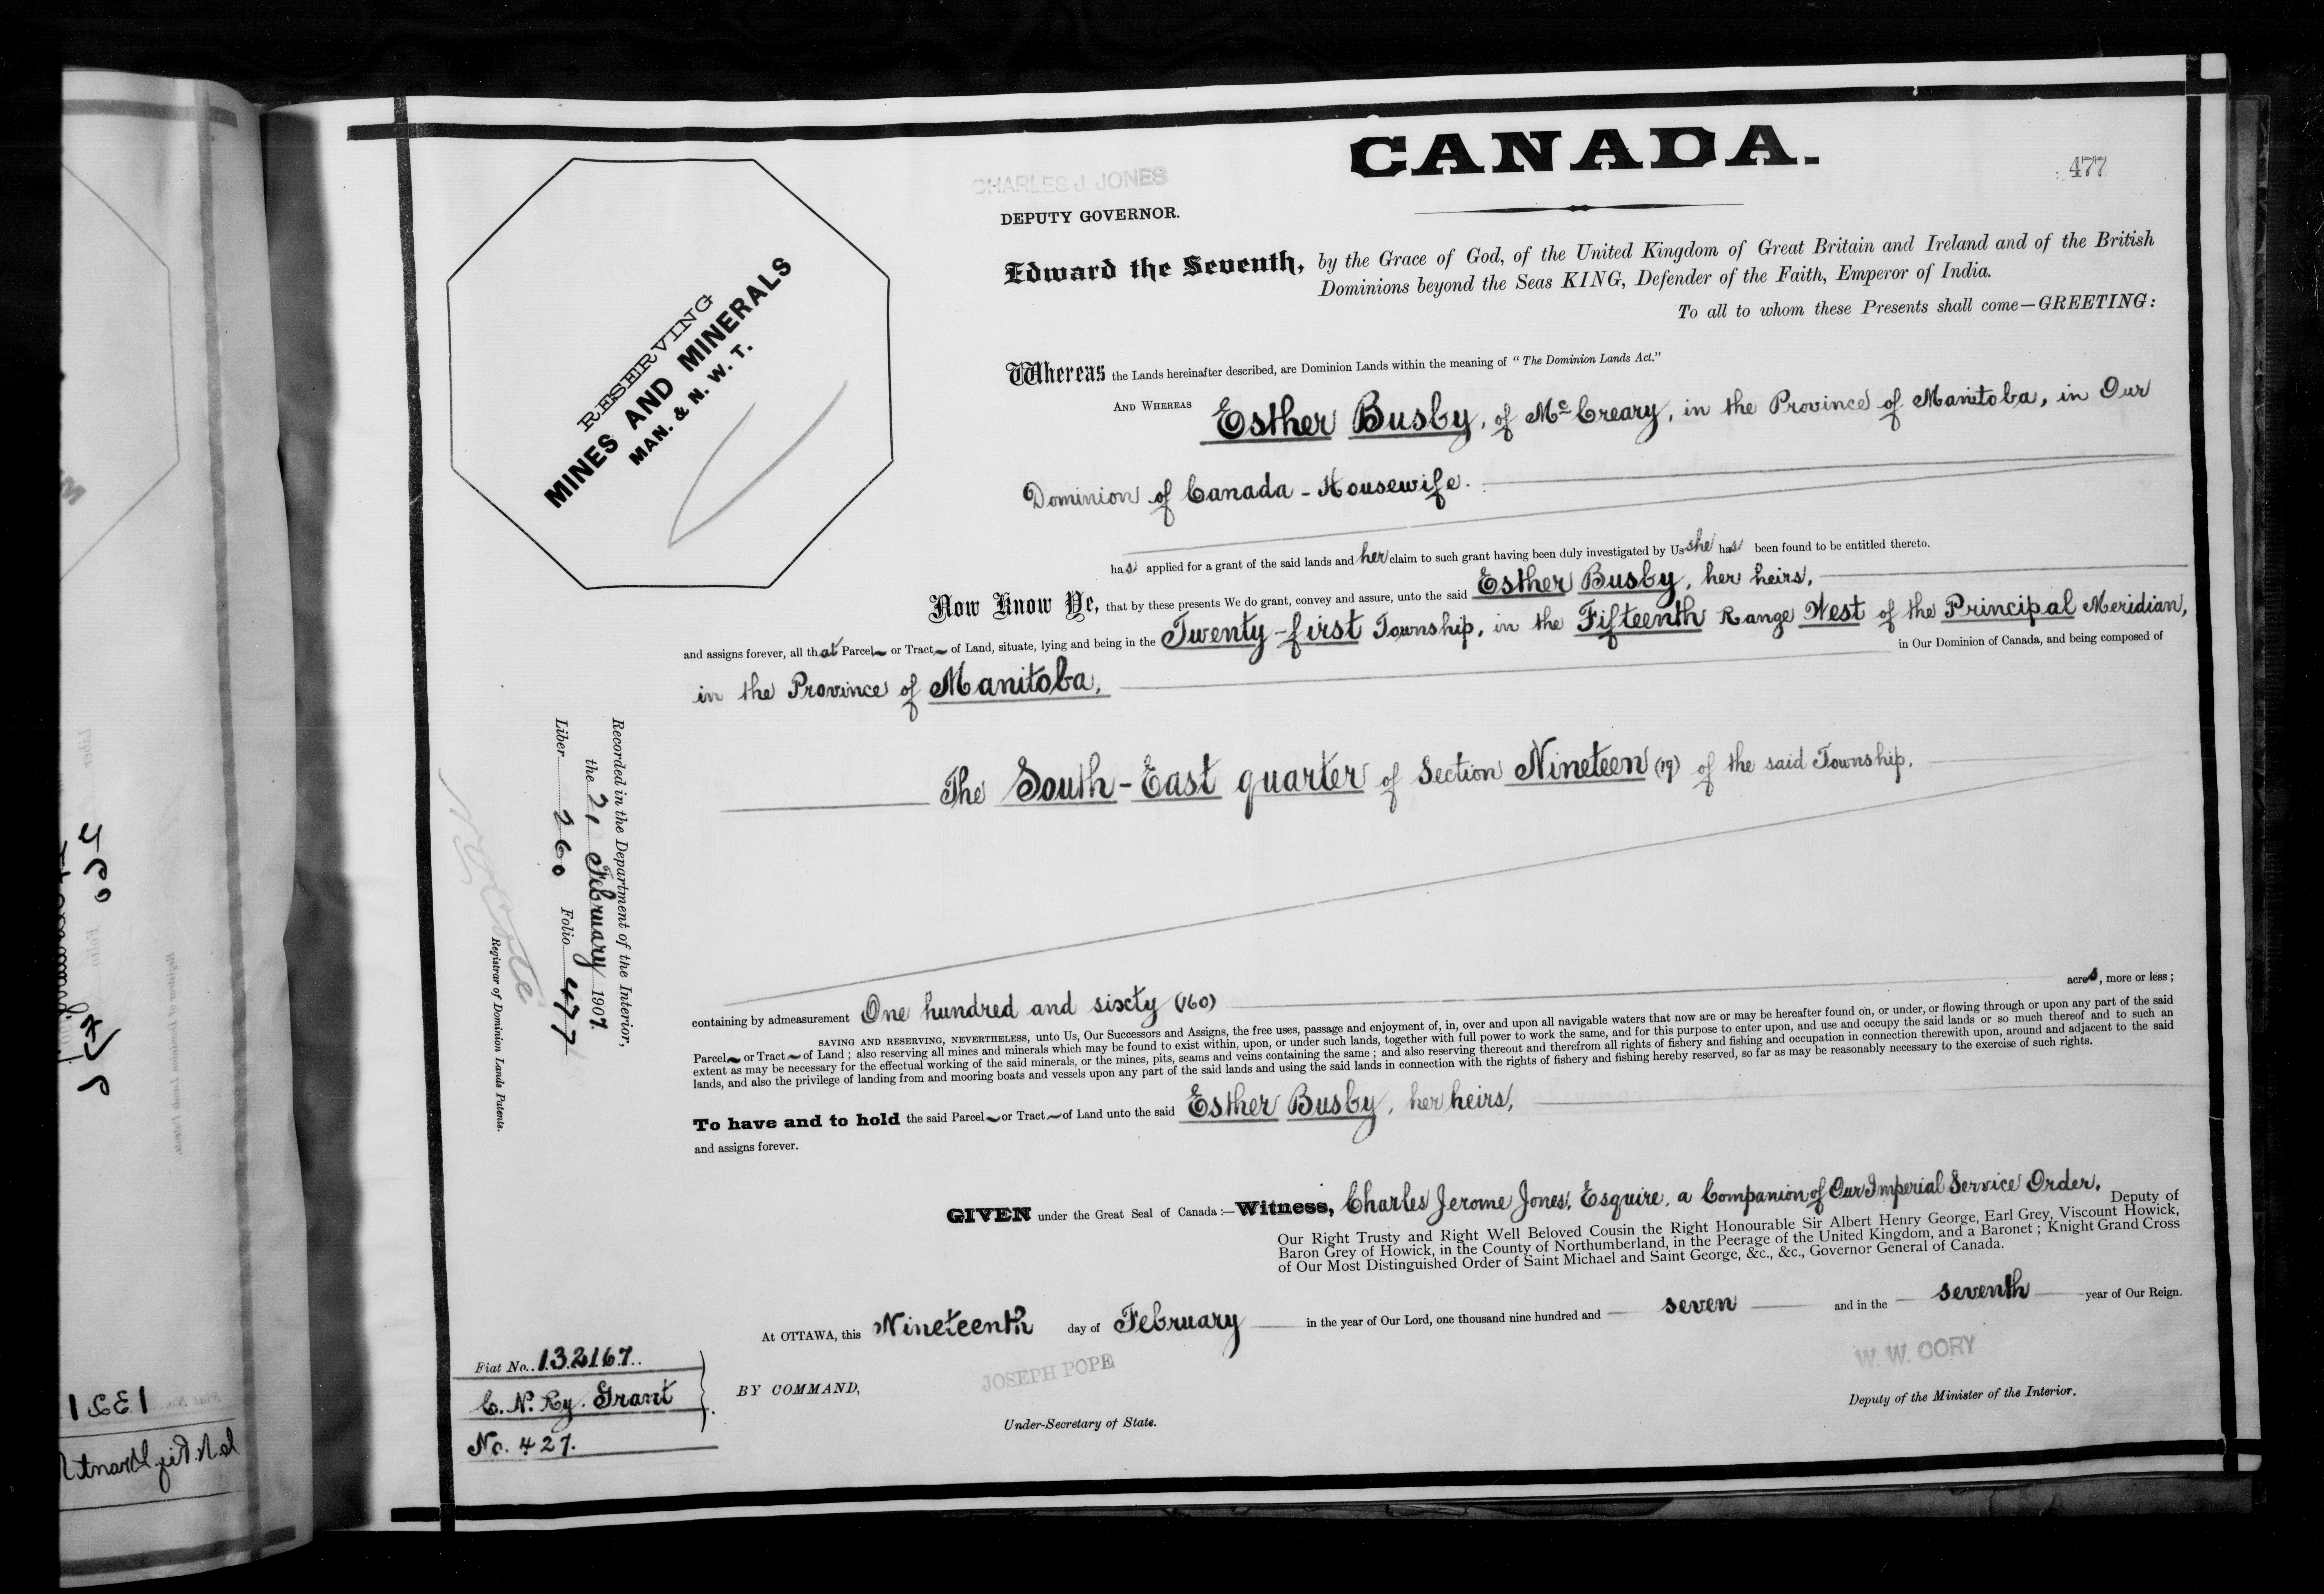 CANADA.
477
CHARLES J. JONES
DEPUTY GOVERNOR.
RESERVING
MINES AND MINERALS
MAN. & N. W. T.
Edward the Seventh, by the Grace of God, of the United Kingdom of Great Britain and Ireland and of the British
Dominions beyond the Seas KING, Defender of the Faith, Emperor of India.
To all to whom these Presents shall come—GREETING:
Whereas the Lands hereinafter described, are Dominion Lands within the meaning of "The Dominion Lands Act."
AND WHEREAS Esther Busby, of McCreary, in the Province of Manitoba, in Our
Dominion of Canada - Housewife.
has applied for a grant of the said lands and her claim to such grant having been duly investigated by Us she has been found to be entitled thereto.
Now Know Ye, that by these presents We do grant, convey and assure, unto the said Esther Busby, her heirs,
and assigns forever, all that Parcel or Tract of Land, situate, lying and being in the Twenty-first Township, in the Fifteenth Range West of the Principal Meridian,
in the Province of Manitoba, in Our Dominion of Canada, and being composed of
The South-East quarter of Section Nineteen (19) of the said Township.
containing by admeasurement One hundred and sixty (160) acres, more or less;
SAVING AND RESERVING, NEVERTHELESS, unto Us, Our Successors and Assigns, the free uses, passage and enjoyment of, in, over and upon all navigable waters that now are or may be hereafter found on, or under, or flowing through or upon any part of the said
Parcel or Tract of Land; also reserving all mines and minerals which may be found to exist within, upon, or under such lands, together with full power to work the same, and for this purpose to enter upon, and use and occupy the said lands or so much thereof and to such an
extent as may be necessary for the effectual working of the said minerals, or the mines, pits, seams and veins containing the same; and also reserving thereout and therefrom all rights of fishery and fishing and occupation in connection therewith upon, around and adjacent to the said
lands, and also the privilege of landing from and mooring boats and vessels upon any part of the said lands and using the said lands in connection with the rights of fishery and fishing hereby reserved, so far as may be reasonably necessary to the exercise of such rights.
To have and to hold the said Parcel or Tract of Land unto the said Esther Busby, her heirs,
and assigns forever.
GIVEN under the Great Seal of Canada:—Witness, Charles Jerome Jones, Esquire, a Companion of Our Imperial Service Order, Deputy of
Our Right Trusty and Right Well Beloved Cousin the Right Honourable Sir Albert Henry George, Earl Grey, Viscount Howick,
Baron Grey of Howick, in the County of Northumberland, in the Peerage of the United Kingdom, and a Baronet; Knight Grand Cross
of Our Most Distinguished Order of Saint Michael and Saint George, &c., &c., Governor General of Canada.
At OTTAWA, this Nineteenth day of February in the year of Our Lord, one thousand nine hundred and seven and in the seventh year of Our Reign.
BY COMMAND,
JOSEPH POPE
Under-Secretary of State.
W. W. CORY
Deputy of the Minister of the Interior.
Recorded in the Department of the Interior,
the 21 February 1907.
Liber 260 Folio 477
Registrar of Dominion Lands Patents.
Fiat No. 132167.
C. N. Ry. Grant
No. 427.